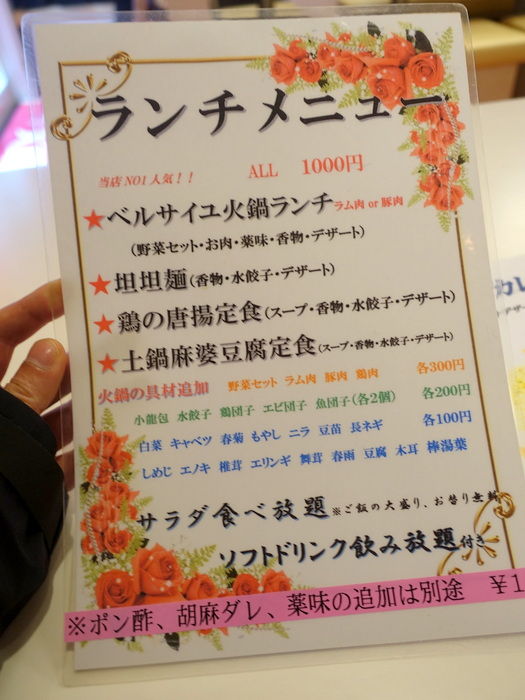 ランチメニュー
当店NO1人気！！ ALL 1000円
★ベルサイユ火鍋ランチ ラム肉 or 豚肉
(野菜セット・お肉・薬味・香物・デザート)
★坦坦麺(香物・水餃子・デザート)
★鶏の唐揚定食(スープ・香物・水餃子・デザート)
★土鍋麻婆豆腐定食(スープ・香物・水餃子・デザート)
火鍋の具材追加 野菜セット ラム肉 豚肉 鶏肉 各300円
小龍包 水餃子 鶏団子 エビ団子 魚団子(各2個) 各200円
白菜 キャベツ 春菊 もやし ニラ 豆苗 長ネギ 各100円
しめじ エノキ 椎茸 エリンギ 舞茸 春雨 豆腐 木耳 棒湯葉
サラダ食べ放題 ※ご飯の大盛り、お替り無料
ソフトドリンク飲み放題付き
※ポン酢、胡麻ダレ、薬味の追加は別途 ￥1